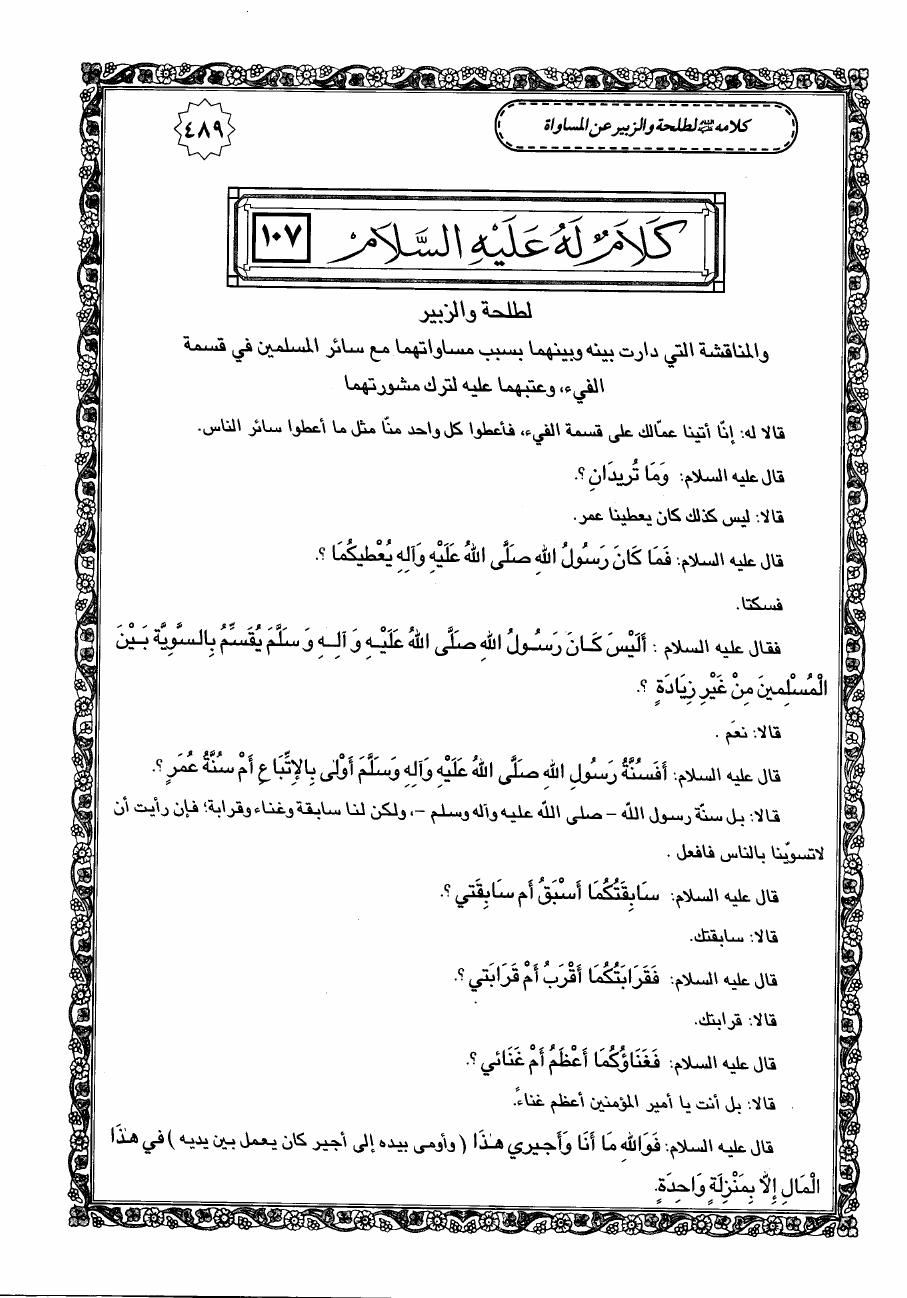 كلامه عليه السلام لطلحة والزبير عن المساواة
٤٨٩
كَلَامٌ لَهُ عَلَيْهِ السَّلَام
١٠٧
لطلحة والزبير
والمناقشة التي دارت بينه وبينهما بسبب مساواتهما مع سائر المسلمين في قسمة
الفيء، وعتبهما عليه لترك مشورتهما
قالا له: إنّا أتينا عمّالك على قسمة الفيء، فأعطوا كل واحد منّا مثل ما أعطوا سائر الناس.
قال عليه السلام: وَمَا تُرِيدَانِ ؟.
قالا: ليس كذلك كان يعطينا عمر.
قال عليه السلام: فَمَا كَانَ رَسُولُ اللهِ صَلَّى اللهُ عَلَيْهِ وَآلِهِ يُعْطِيكُمَا ؟.
فسكتا.
فقال عليه السلام : أَلَيْسَ كَـانَ رَسُـولُ اللهِ صَلَّى اللهُ عَلَيْـهِ وَ آلِـهِ وَ سَلَّمَ يُقَسِّمُ بِالسَّوِيَّةِ بَـيْنَ
الْمُسْلِمِينَ مِنْ غَيْرِ زِيَادَةٍ ؟.
قالا: نعَم .
قال عليه السلام: أَفَسُنَّةُ رَسُولِ اللهِ صَلَّى اللهُ عَلَيْهِ وَآلِهِ وَسَلَّمَ أَوْلَى بِالإِتِّبَاعِ أَمْ سُنَّةُ عُمَرٍ ؟.
قالا: بل سنّة رسول اللّه – صلى اللّه عليه وآله وسلم –، ولكن لنا سابقة وغناء وقرابة؛ فإن رأيت أن
لاتسوّينا بالناس فافعل .
قال عليه السلام: سَابِقَتُكُمَا أَسْبَقُ أَم سَابِقَتي ؟.
قالا: سابقتك.
قال عليه السلام: فَقَرَابَتُكُمَا أَقْرَبُ أَمْ قَرَابَتي ؟.
قالا: قرابتك.
قال عليه السلام: فَغَنَاؤُكُمَا أَعْظَمُ أَمْ غَنَائي ؟.
قالا: بل أنت يا أمير المؤمنين أعظم غناءً.
قال عليه السلام: فَوَاللهِ مَا أَنَا وَأَجيري هـٰذَا ( وأومى بيده إلى أجير كان يعمل بين يديه ) في هـٰذَا
الْمَالِ إِلاَّ بِمَنْزِلَةٍ وَاحِدَةٍ.